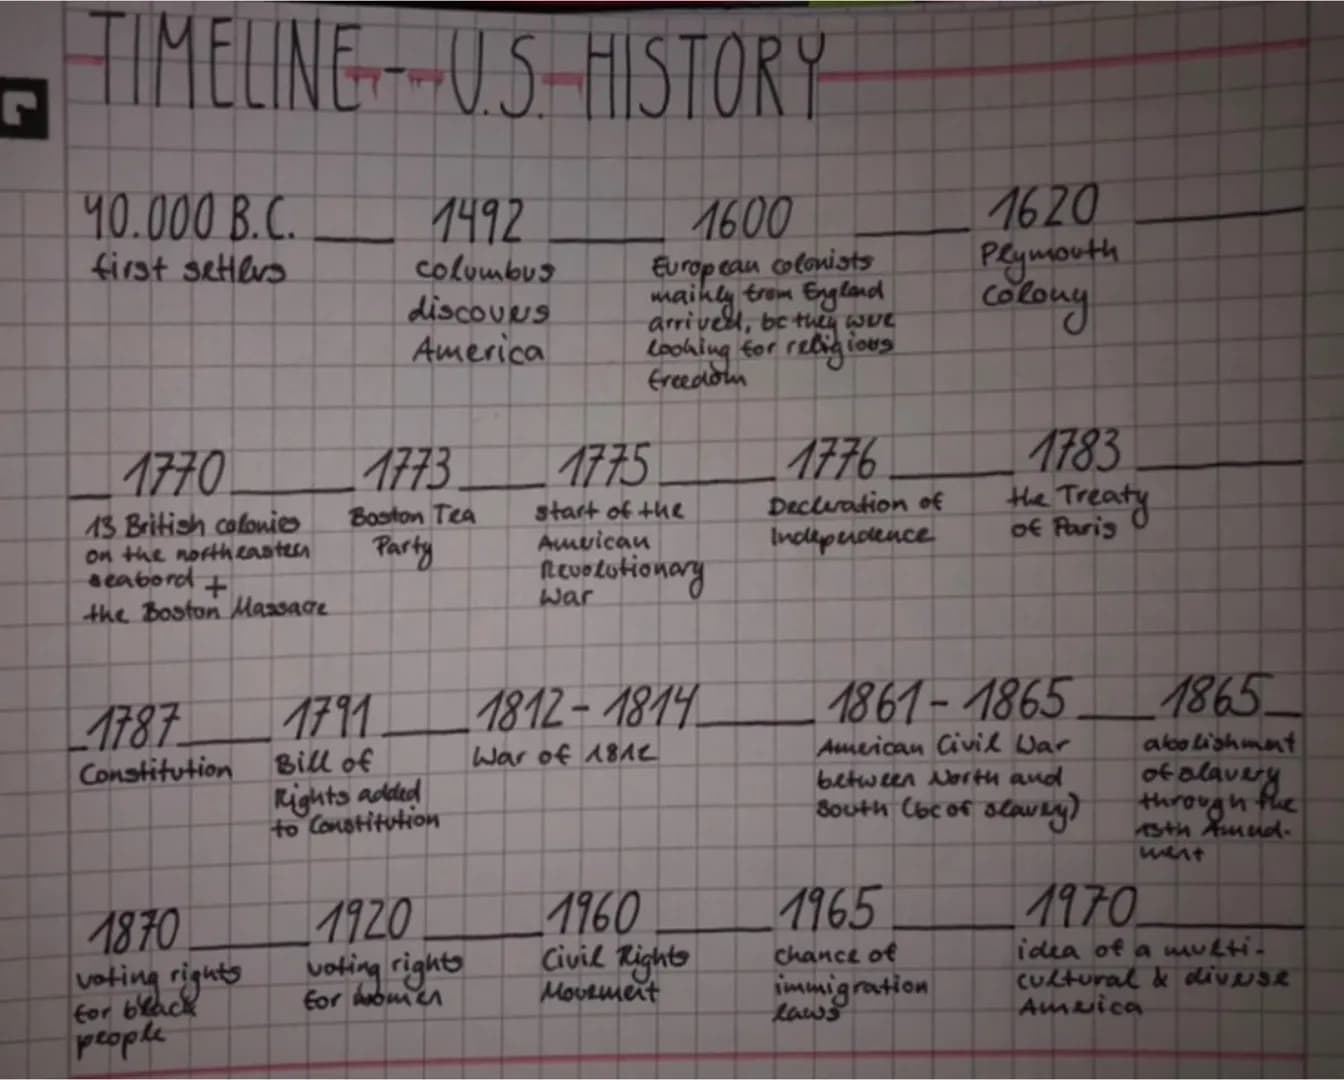 TIMELINE - U.S. HISTORY
40.000 B.C. 1492 1600 1620
first settlers
columbus
discovers
America
European colonists
mainly from England
arrived, bc they were
looking for religious
freedom
Plymouth
Colony
1770 1773 1775 1776 1783
13 British colonies
on the northeastern
seabord +
the Boston Massacre
Boston Tea
Party
start of the
American
Revolutionary
War
Declaration of
Independence
the Treaty
of Paris
1787 1791 1812-1814 1861-1865 1865
Constitution
Bill of
Rights added
to Constitution
War of 1812
American Civil War
between North and
South (bc of slavery)
abolishment
of slavery
through the
13th Amend-
ment
1870 1920 1960 1965 1970
voting rights
for black
people
voting rights
for women
Civil Rights
Movement
chance of
immigration
laws
idea of a multi-
cultural & diverse
America